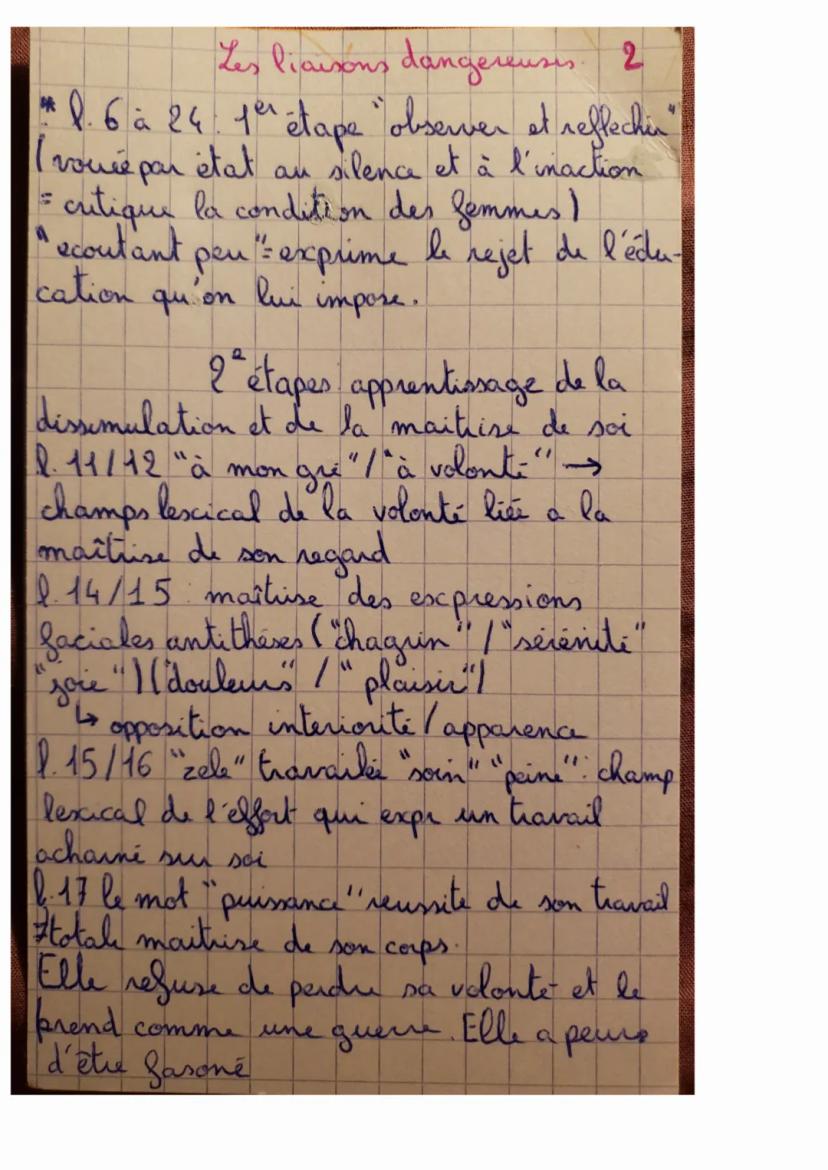 Les liaisons dangereuses 2
* l. 6 à 24 : 1er étape "observer et reflechir"
(vouée par état au silence et à l'inaction
= critique la condition des femmes)
"ecoutant peu" = exprime le rejet de l'édu-
cation qu'on lui impose.
2e étapes : apprentissage de la
dissimulation et de la maitrise de soi
l. 11/12 "à mon gré" / "à volonté" →
champs lexical de la volonté liée a la
maîtrise de son regard
l. 14/15 : maîtrise des expressions
faciales antithèses ("chagrin" / "sérénité"
"joie") ("douleurs" / "plaisir")
↳ opposition interiorité / apparence
l. 15/16 "zele" travailée "soin" "peine" : champ
lexical de l'effort qui expr un travail
acharné sur soi
l. 17 le mot "puissance" reussite de son travail
totale maitrise de son corps.
Elle refuse de perdre sa volonté et le
prend comme une guerre. Elle a peur
d'être